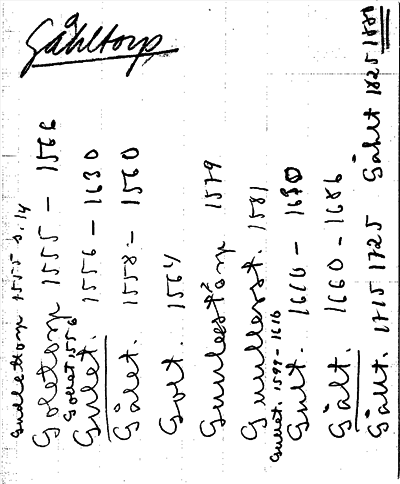 Gåhltorp
Gudlettorp 1555 s. 14
Goletorp 1555 - 1566
Gollet. 1556
Gulet. 1556 - 1630
Gålet. 1558 - 1560
Golt. 1564
Gunlestorp 1579
Gunllerst. 1581
Gullet. 1599 - 1616
Gult. 1610 - 1630
Gålt. 1660 - 1686
Gåhlt. 1715 1725 Gåhlt 1825 1880